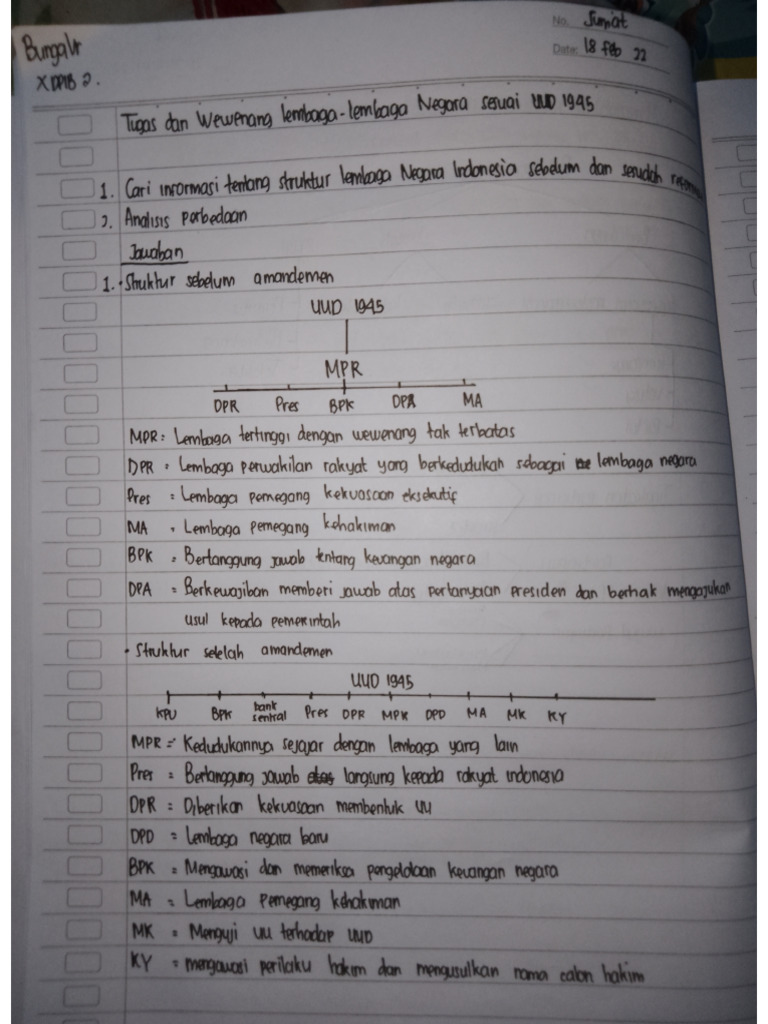 No. Jumat
Bungalr
Date: 18 Feb 22
X DPIB 2.
Tugas dan Wewenang lembaga-lembaga Negara sesuai UUD 1945
1. Cari informasi tentang struktur lembaga Negara Indonesia sebelum dan sesudah
2. Analisis perbedaan
Jawaban
1. · Struktur sebelum amandemen
UUD 1945
MPR
DPR Pres BPK DPA MA
MPR = Lembaga tertinggi dengan wewenang tak terbatas
DPR = Lembaga perwakilan rakyat yang berkedudukan sebagai lembaga negara
Pres = Lembaga pemegang kekuasaan eksekutif
MA = Lembaga pemegang kehakiman
BPK = Bertanggung jawab tentang keuangan negara
DPA = Berkewajiban memberi jawab atas pertanyaan presiden dan berhak mengajukan
usul kepada pemerintah
· Struktur setelah amandemen
UUD 1945
KPU BPK bank sentral Pres DPR MPR DPD MA MK KY
MPR = Kedudukannya sejajar dengan lembaga yang lain
Pres = Bertanggung jawab langsung kepada rakyat indonesia
DPR = Diberikan kekuasaan membentuk UU
DPD = Lembaga negara baru
BPK = Mengawasi dan memeriksa pengelolaan keuangan negara
MA = Lembaga pemegang kehakiman
MK = Menguji UU terhadap UUD
KY = mengawasi perilaku hakim dan mengusulkan nama calon hakim